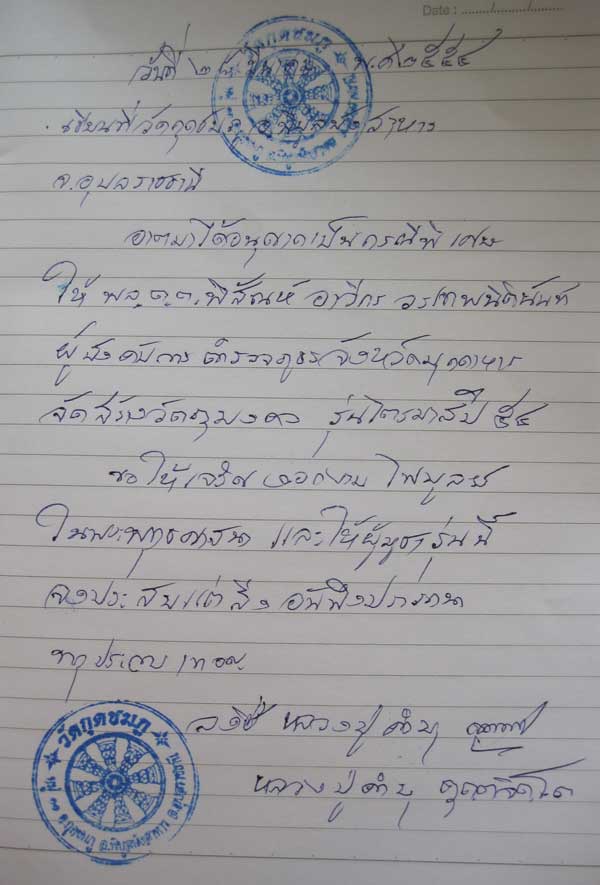 Date : ......../......../........
วันที่ ๒๘ มีนาคม พ.ศ. ๒๕๕๔
เขียนที่วัดกุดชมภู อ.พิบูลมังสาหาร
จ.อุบลราชธานี
อาตมาได้อนุญาตเป็นกรณีพิเศษ
ให้ พล.ต.ต.พิสัณห์ อาวีกร วรเทพนิตินันท์
ผู้บังคับการตำรวจภูธรจังหวัดมุกดาหาร
จัดสร้างวัตถุมงคล รุ่นไตรมาสปี ๕๔
ขอให้เจริญงอกงามไพบูลย์
ในพระพุทธศาสนา และให้ผู้บูชารุ่นนี้
จงประสบแต่สิ่งอันพึงปรารถนา
ทุกประการ เทอญ
ลงชื่อ หลวงปู่คำบุ
หลวงปู่คำบุ คุตฺตจิตฺโต
วัดกุดชมภู